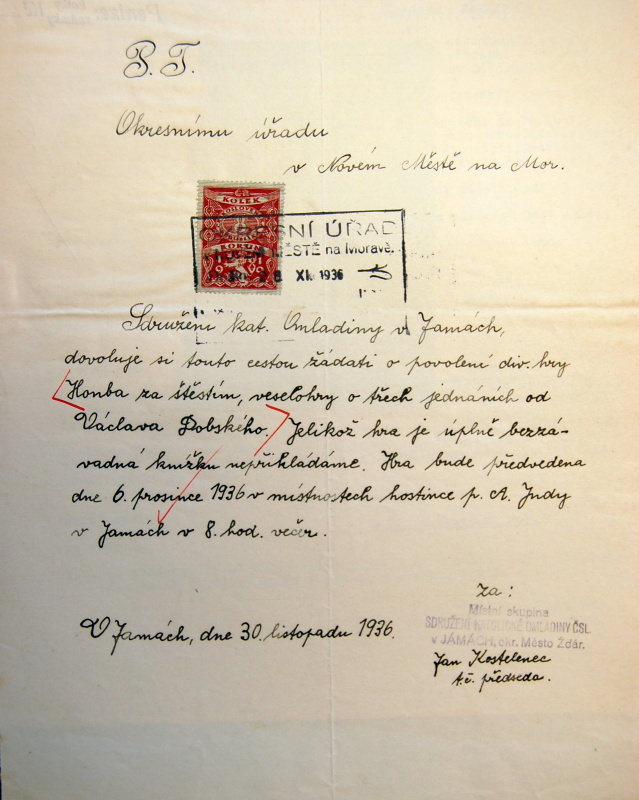 P. T.
Okresnímu úřadu
v Novém Městě na Mor.
KOLEK
OKRESNÍ ÚŘAD
MĚSTĚ na Moravě.
XI. 1936
Sdružení kat. Omladiny v Jamách,
dovoluje si touto cestou žádati o povolení div. hry
Honba za štěstím, veselohry o třech jednáních od
Václava Dobského. Jelikož hra je úplně bezzá-
vadná knížku nepřikládáme. Hra bude předvedena
dne 6. prosince 1936 v místnostech hostince p. A. Indy
v Jamách v 8. hod. večer.
za:
Místní skupina
SDRUŽENÍ KATOLICKÉ OMLADINY ČSL.
v JÁMÁCH, okr. Město Žďár.
V Jamách, dne 30. listopadu 1936.
Jan Kostelenec
t. č. předseda.